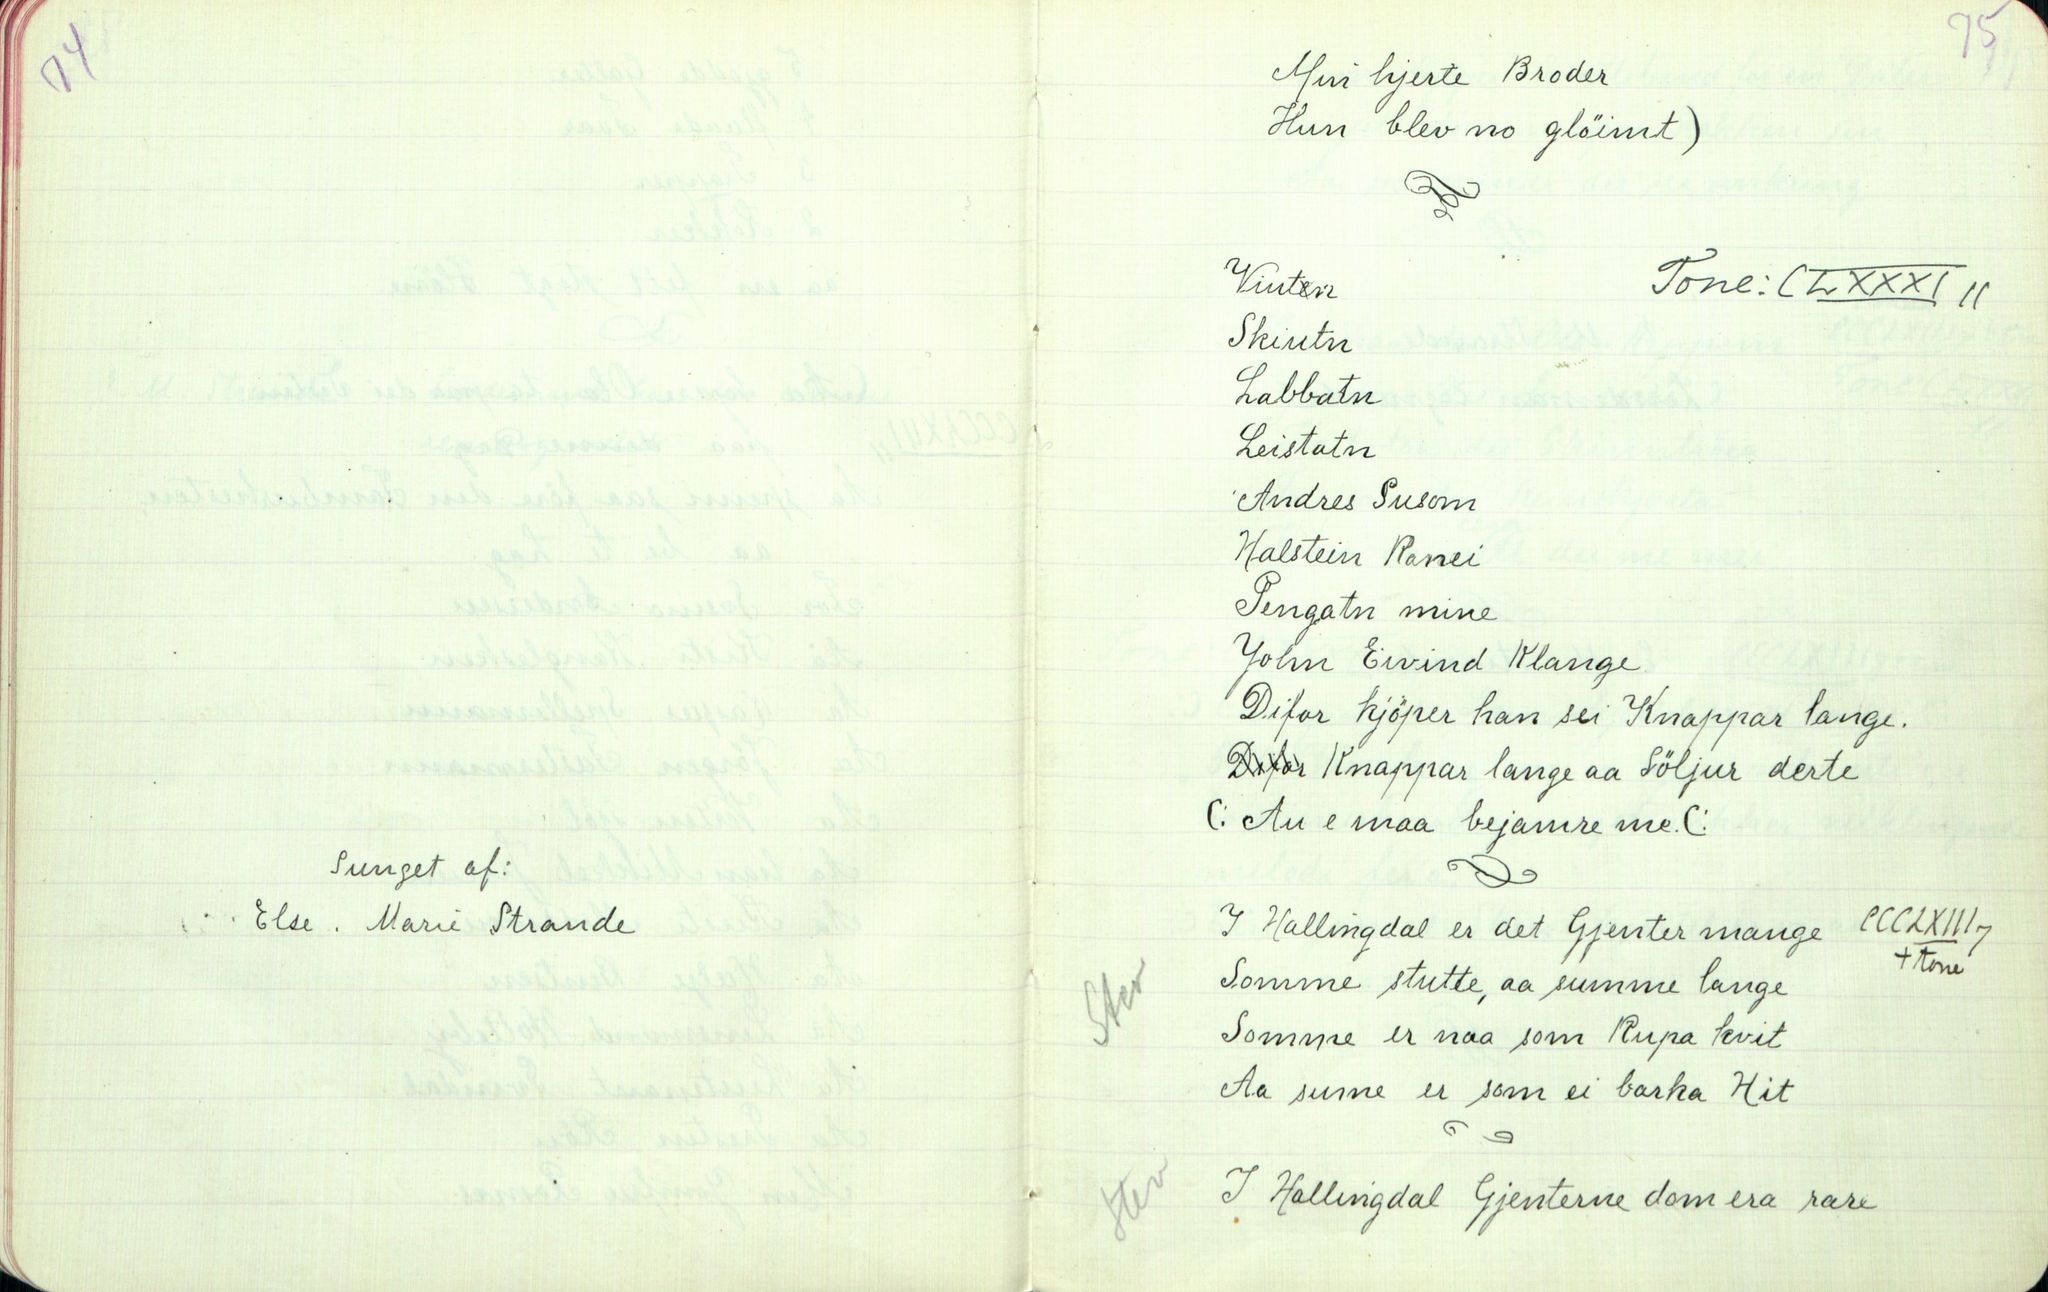 74
Sunget af:
Else. Marie Strande
75
Min hjerte Broder
Hun blev no glöimt)
Vinten
Tone: CLXXXI 11
Skintn
Labbatn
Leistatn
Andres Susom
Halstein Ranei
Pengatn mine
John Eivind Klange
Difor kjöper han sei Knappar lange.
Difor Knappar lange aa Söljur derte
(: Au e maa bejamre me. (:
I Hallingdal er det Gjenter mange
CCCLXIII7
+ Tone
Stev
Somme stutte, aa summe lange
Somme er naa som Rupa kvit
Aa sume er som ei barka Hit
Stev
I Hallingdal Gjenterne dom era rare